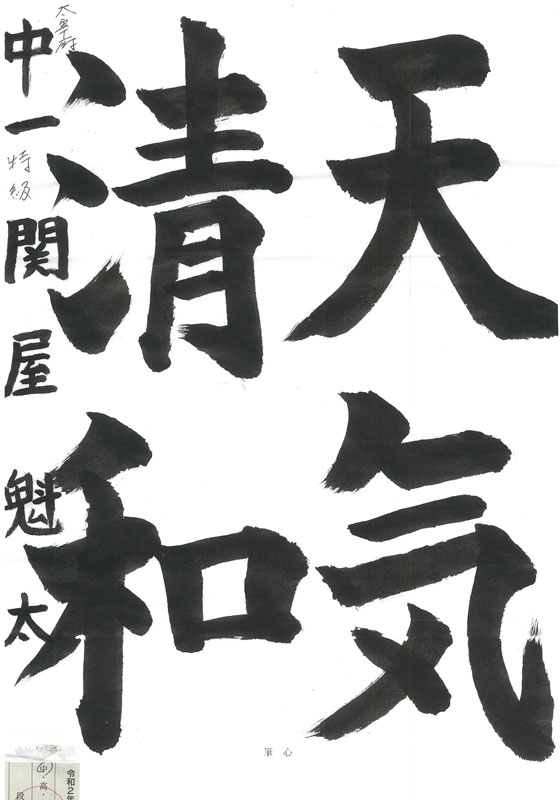 天気
清和
太宰府
中一特級関屋魁太
筆心
令和2年
中・高・
段